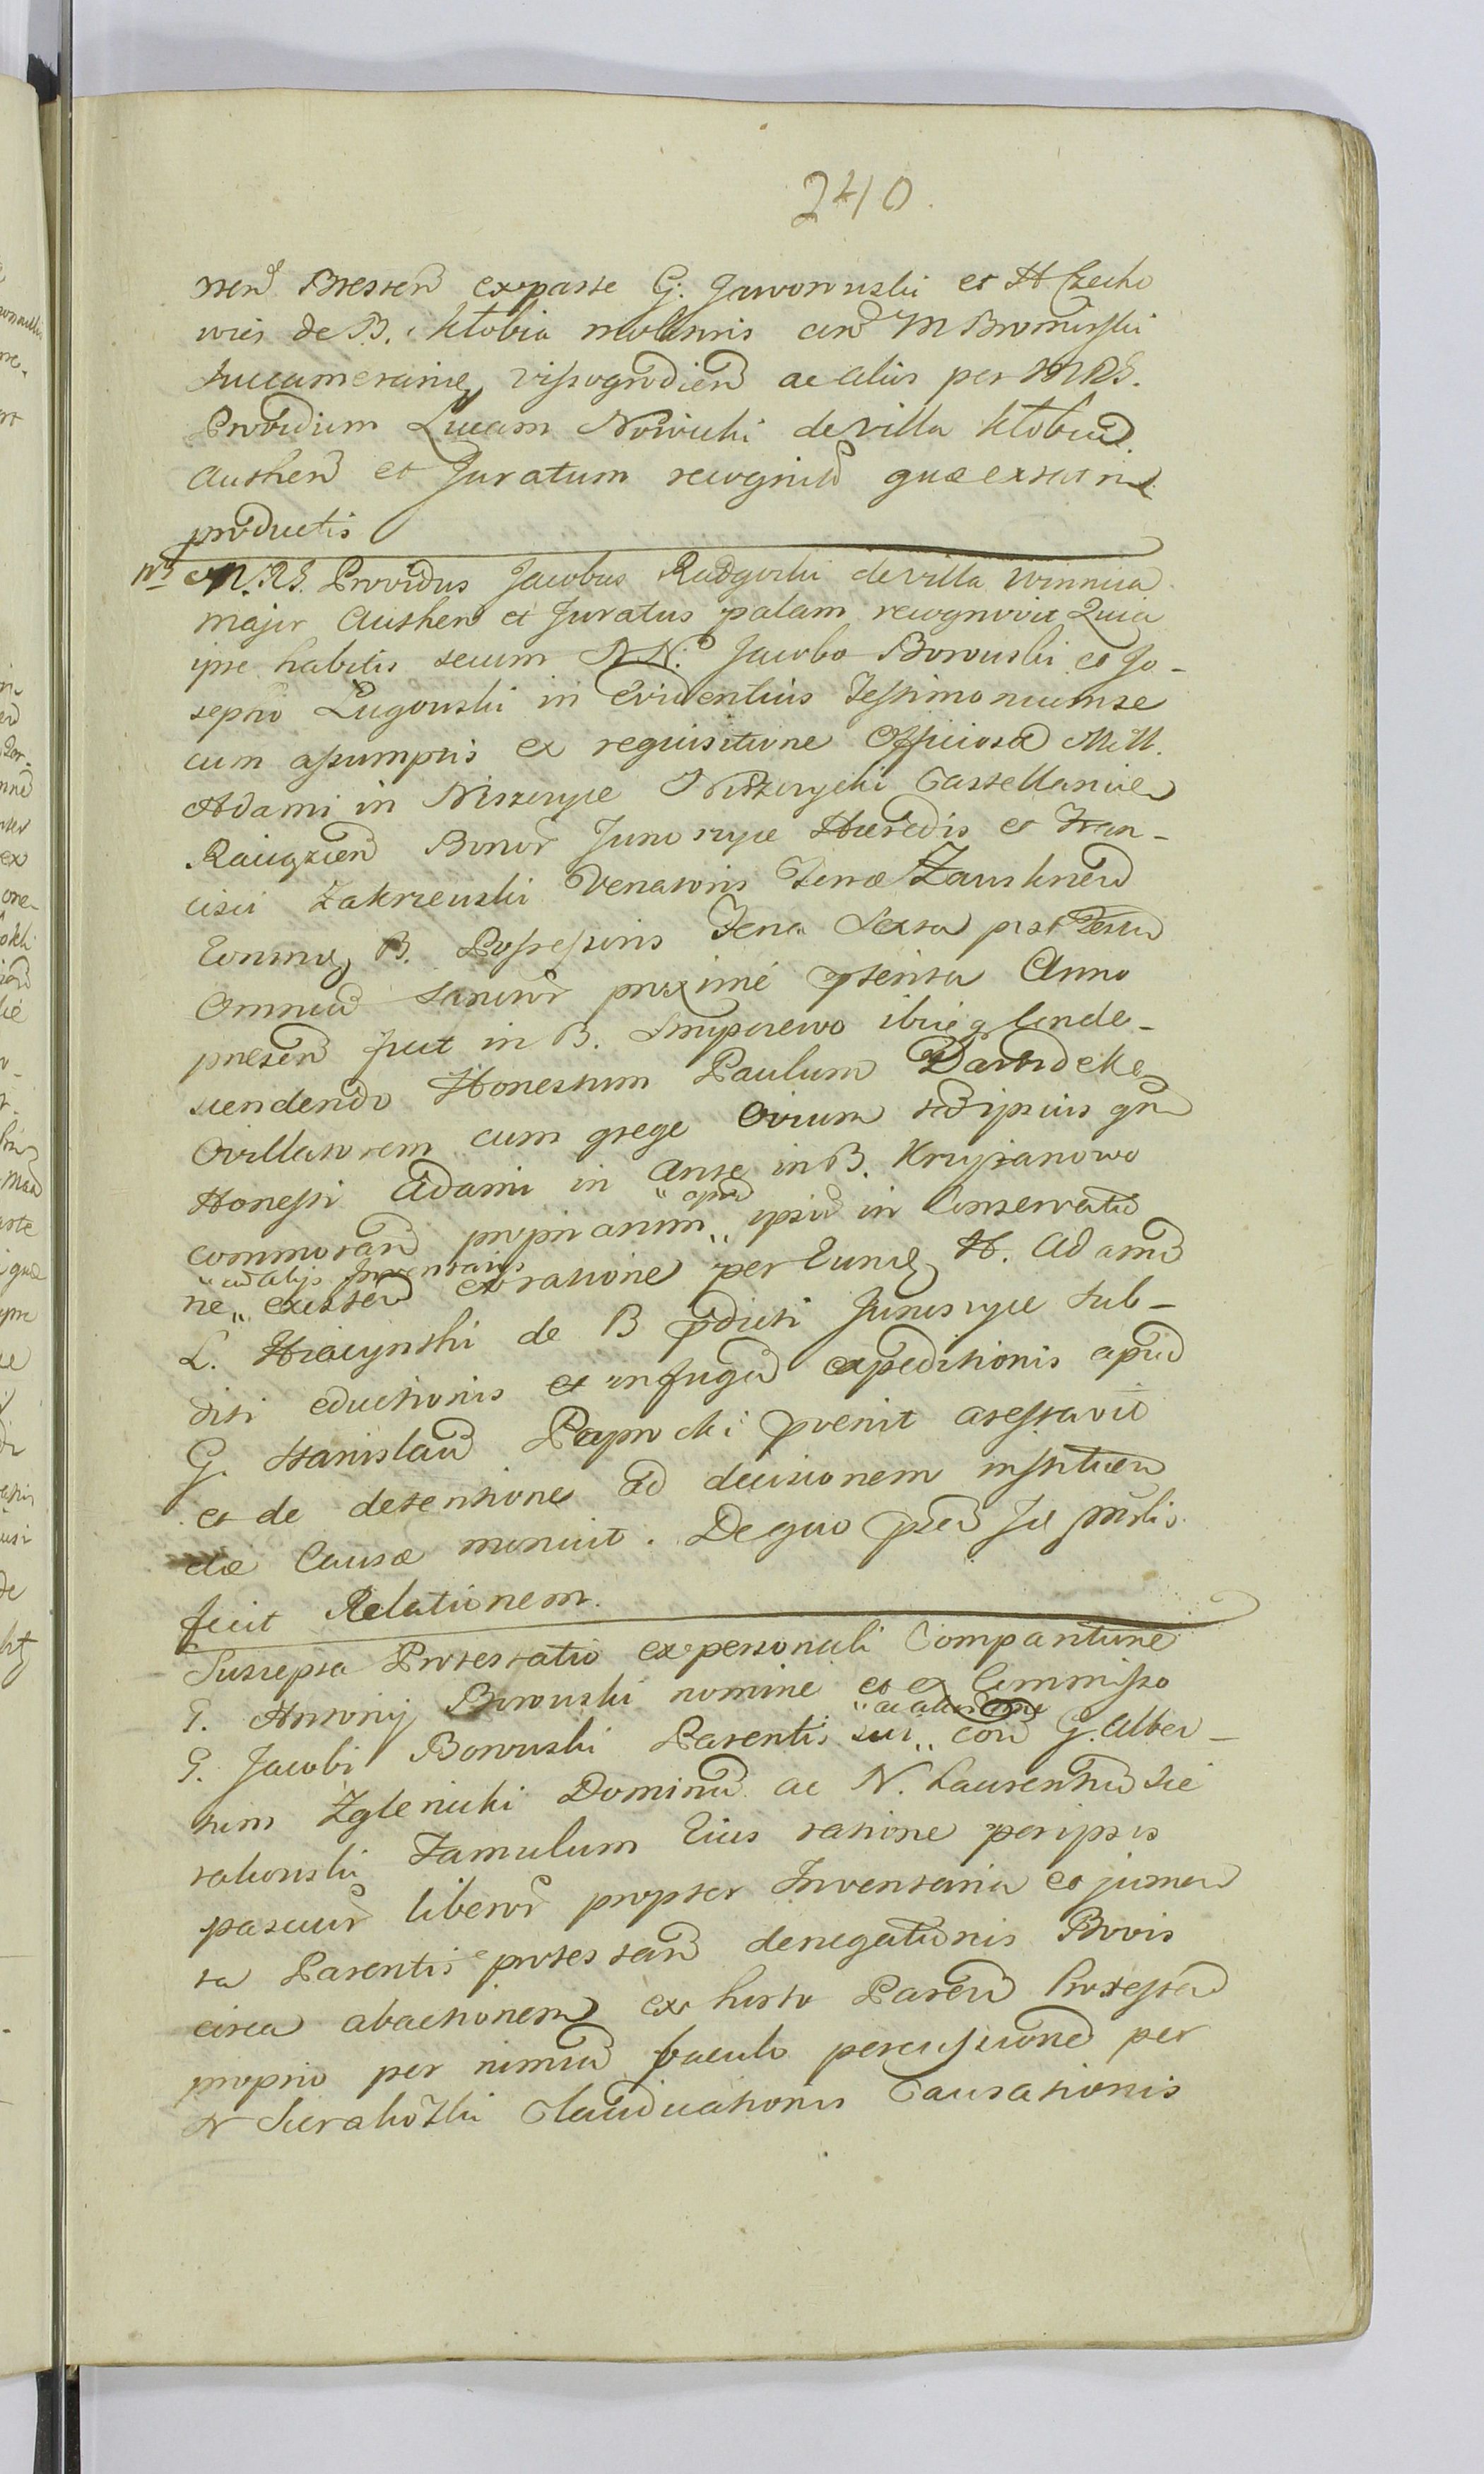 240.
Bresten ex parte G. Jaworuski et H Czecho
wicz de B. Kłobia molitoris con M Bromirski
Succamerarium Vissogrodien ac alios per MRG.
Providum Lucam Nowicki de villa Kłobia
Authen et Juratum recognitis quae extat in
productis
MRG. Providus Jacobus Radgoski de villa Winnica
major Authen et Juratus palam recognovit Quia
ipse habitis secum NN. Jacobo Borowski et Jo-
sepho Lugowski in Evidentius Testimonium se
cum assumptis ex requisitione Officiosa M
Adami in Niszczyce Niszczycki Castellanidae
Raciązien Bonor Junoszyce Haeredis et Fran-
cisci Zakrzewski Venatoris Terrae Zawskrnen
B. Possessoris Feria Sexta post Festum
Omnium Sanctor proxime pterita Anno
presen fuit in B. ibique conde-
scendendo Honestum Paulum
Ovillatorem cum grege Ovium sed ipsius
Honesti Adami in ante in B. Krzyżanowo
commoran propriarum „ apud ipsum in Conservatio
ne „ ac aliis Inventariis existen ex ratione per H. Adamum
L. de B pdicti Junoszyce Sub-
diti eductionis et in fugam expeditionis apud
G. Stanislaum Paprocki pvenit arestavit
et de detentione ad decisionem instituen
dae Causae monuit. De quo psen
fecit Relationem.
Suscepta Protestatio ex personali Comparitione
G. Antonij Borowski nomine et ex Commisso
G. Jacobi Borowski Parentis sui „ con G. Alber-
tum Zglenicki Dominum ac N. Laurentium Sie
rakowski Famulum Eius ratione per ipsos
pascuor liberor propter Inventaria et jumen
ta Parentis protestan denegationis Bovis
circa abactionem ex horto Paren Protestan
proprio per nimiam baculo percussionem per
N Sierakowski Claudicationis Causationis